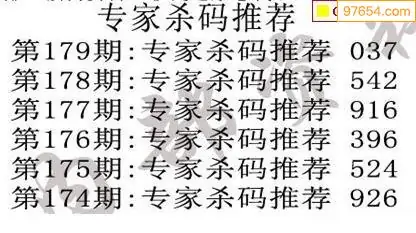 97654.com
专家杀码推荐
第179期:专家杀码推荐 037
第178期:专家杀码推荐 542
第177期:专家杀码推荐 916
第176期:专家杀码推荐 396
第175期:专家杀码推荐 524
第174期:专家杀码推荐 926